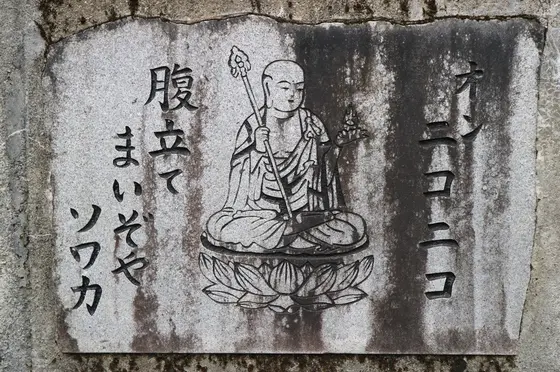 オン
ニコニコ
腹立て
まいぞや
ソワカ